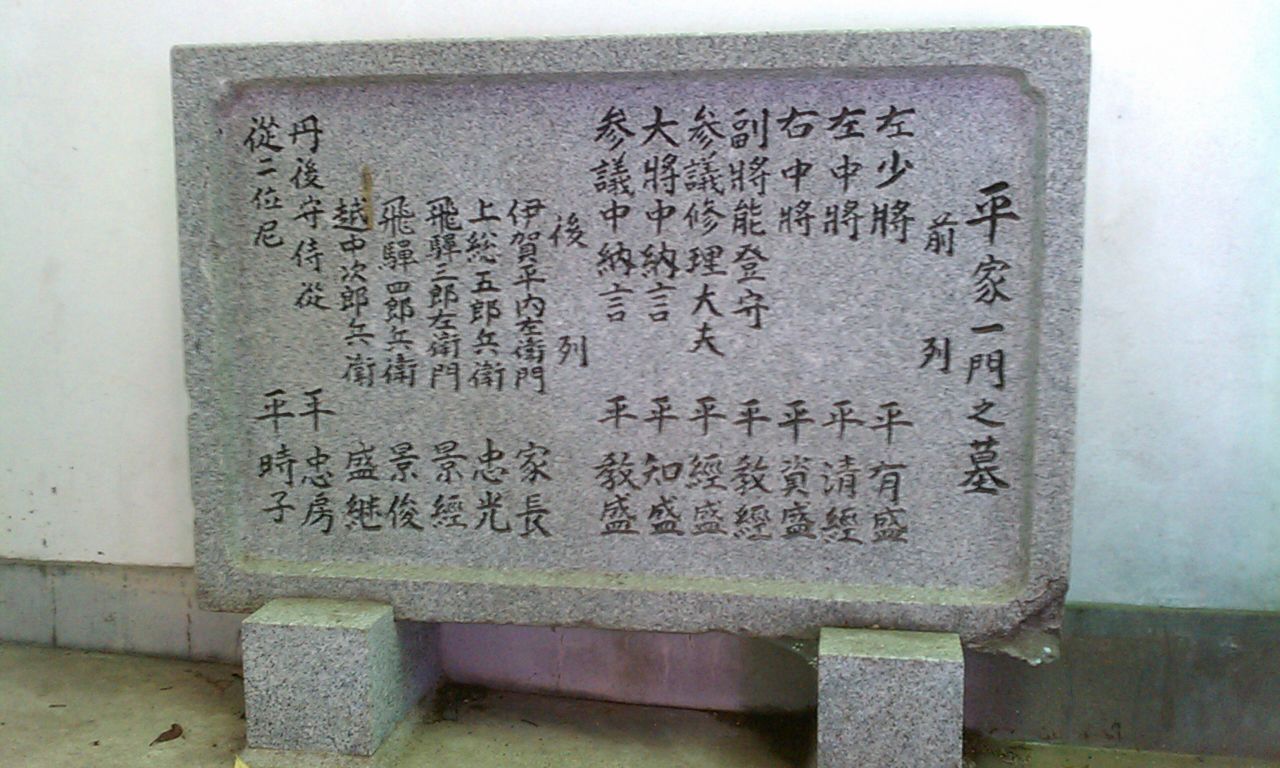 平家一門之墓
前列
左少將 平有盛
左中將 平清經
右中將 平資盛
副將能登守 平教經
参議修理大夫 平經盛
大將中納言 平知盛
参議中納言 平教盛
後列
伊賀平内左衛門 家長
上総五郎兵衛 忠光
飛驒三郎左衛門 景經
飛驒四郎兵衛 景俊
越中次郎兵衛 盛継
丹後守侍從 平忠房
從二位尼 平時子